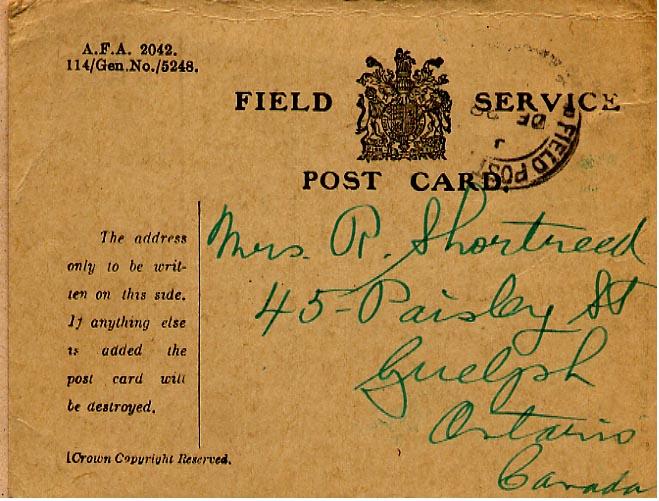 A.F.A. 2042.
114/Gen.No./5248.
FIELD SERVICE
POST CARD.
FIELD POST
DE
The address
only to be writ-
ten on this side.
If anything else
is added the
post card will
be destroyed.
[Crown Copyright Reserved.
Mrs. R. Shortreed
45-Paisley St
Guelph
Ontario
Canada